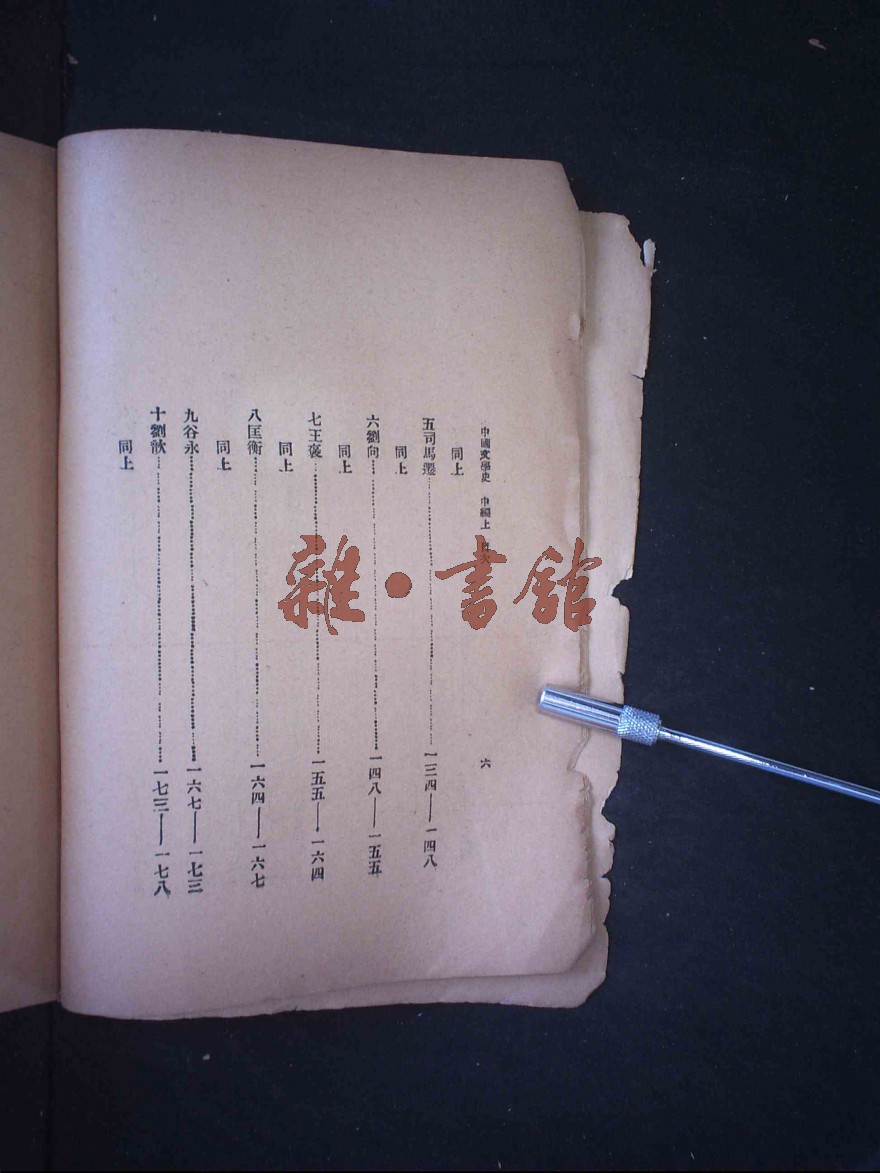 中國文學史 中編上 目次 六
同上
五司馬遷 一三四——一四八
同上
六劉向 一四八——一五五
同上
七王褒 一五五——一六四
同上
八匡衡 一六四——一六七
同上
九谷永 一六七——一七三
十劉歆 一七三——一七八
同上
雜·書館